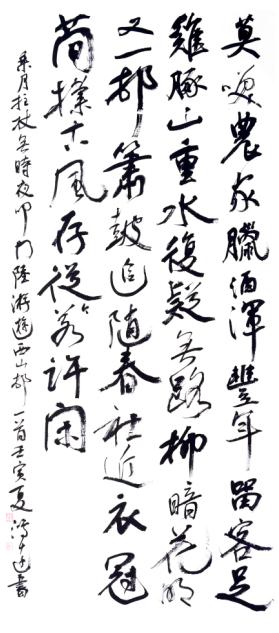 莫笑農家臘酒渾豐年留客足
雞豚山重水復疑無路柳暗花明
又一邨簫鼓追隨春社近衣冠
簡樸古風存從今若許閑
乘月拄杖無時夜叩門陸游遊西山邨一首壬寅夏書